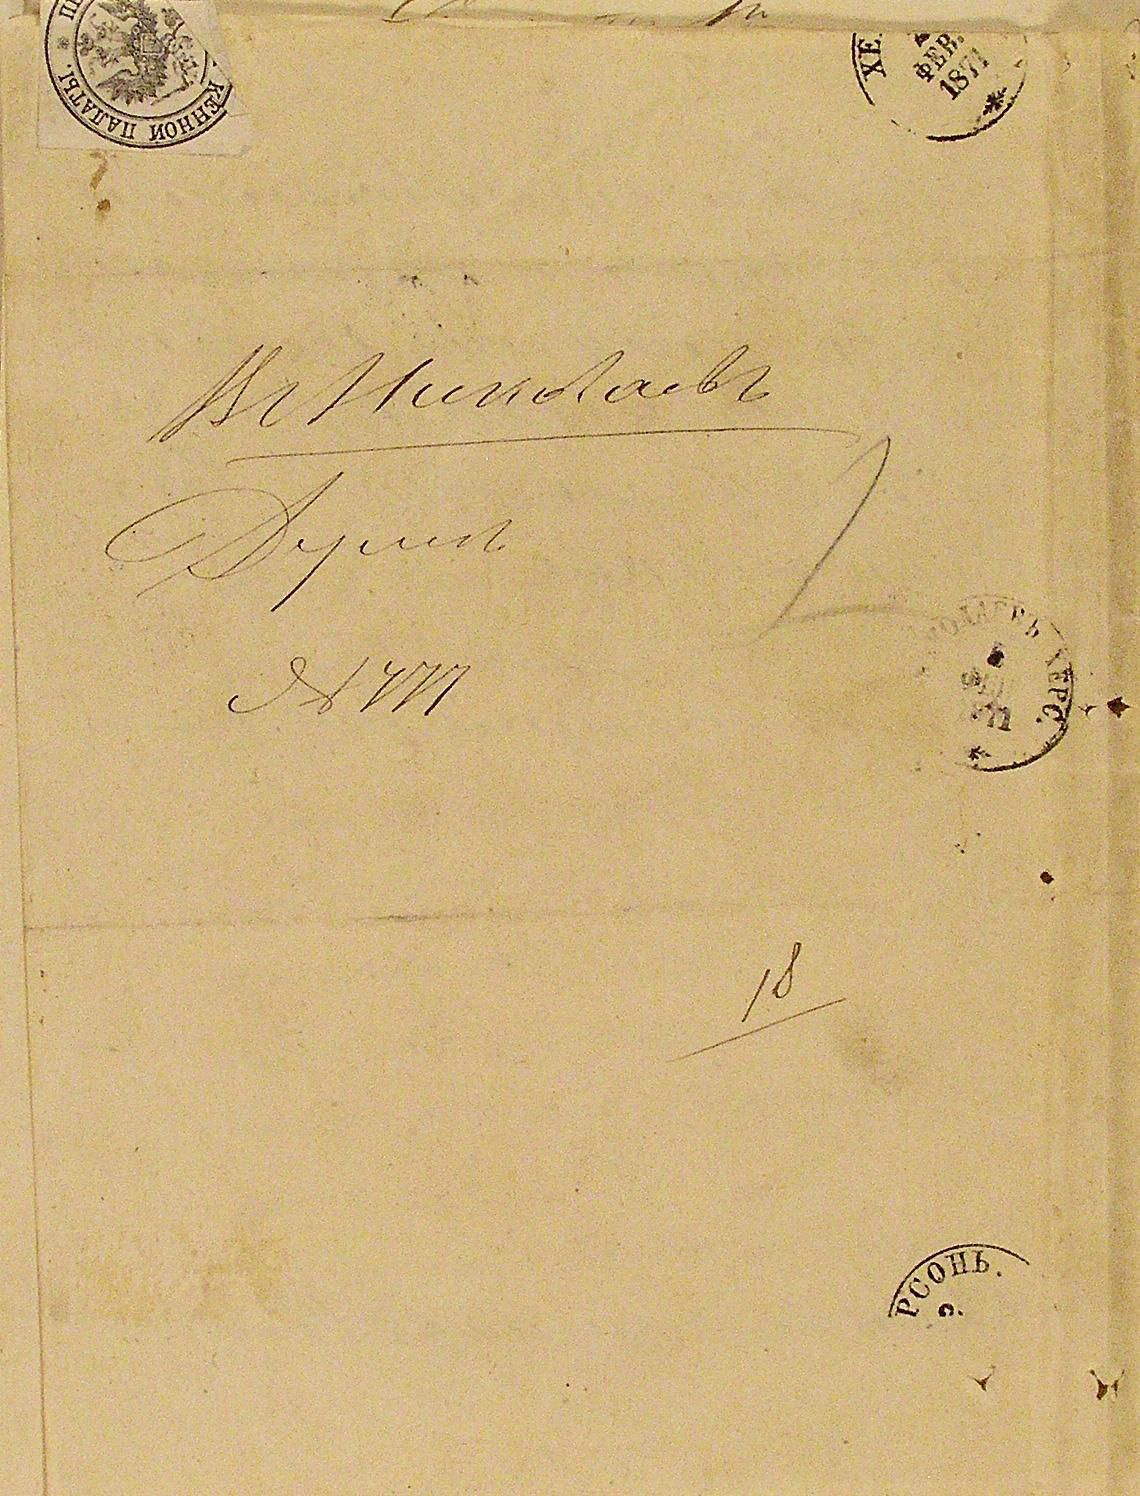 КЕННОЙ ПАЛАТЫ.
ХЕ
ФЕВ.
1871
Въ Николаевъ
Думѣ
№ 777
НИКОЛАЕВЪ ХЕРС.
1871
18
РСОНЬ.